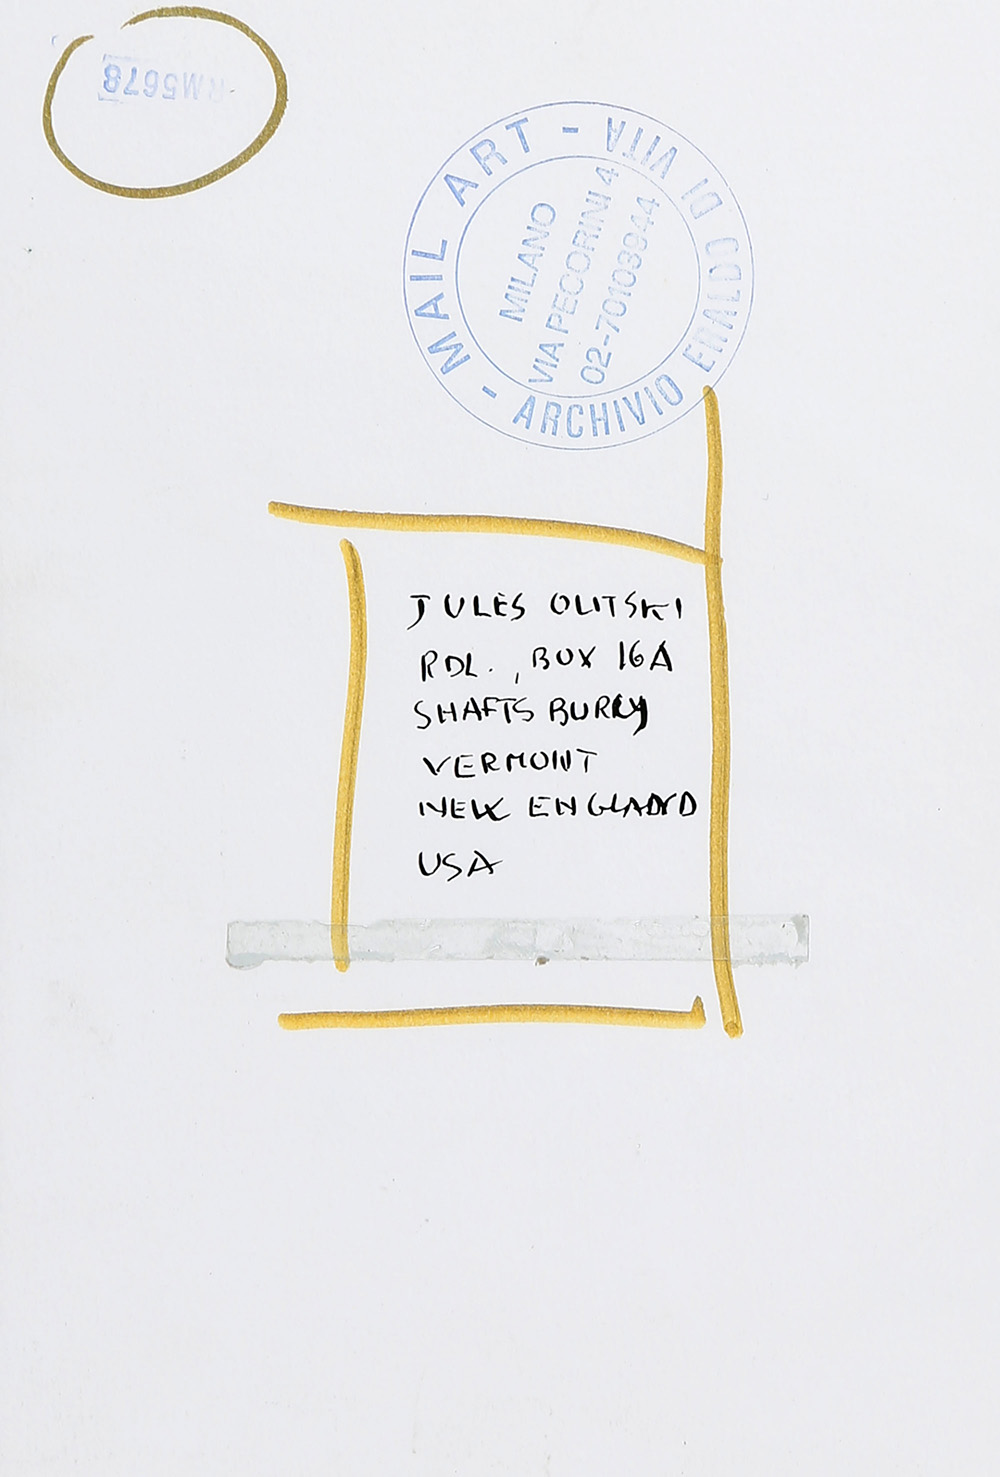 RM5678
MAIL ART - ARCHIVIO ERALDO DI VITA -
MILANO
VIA PECORINI 4
02-70103944
JULES OLITSKI
RDL. , BOX 16A
SHAFTSBURRY
VERMONT
NEW ENGLAND
USA